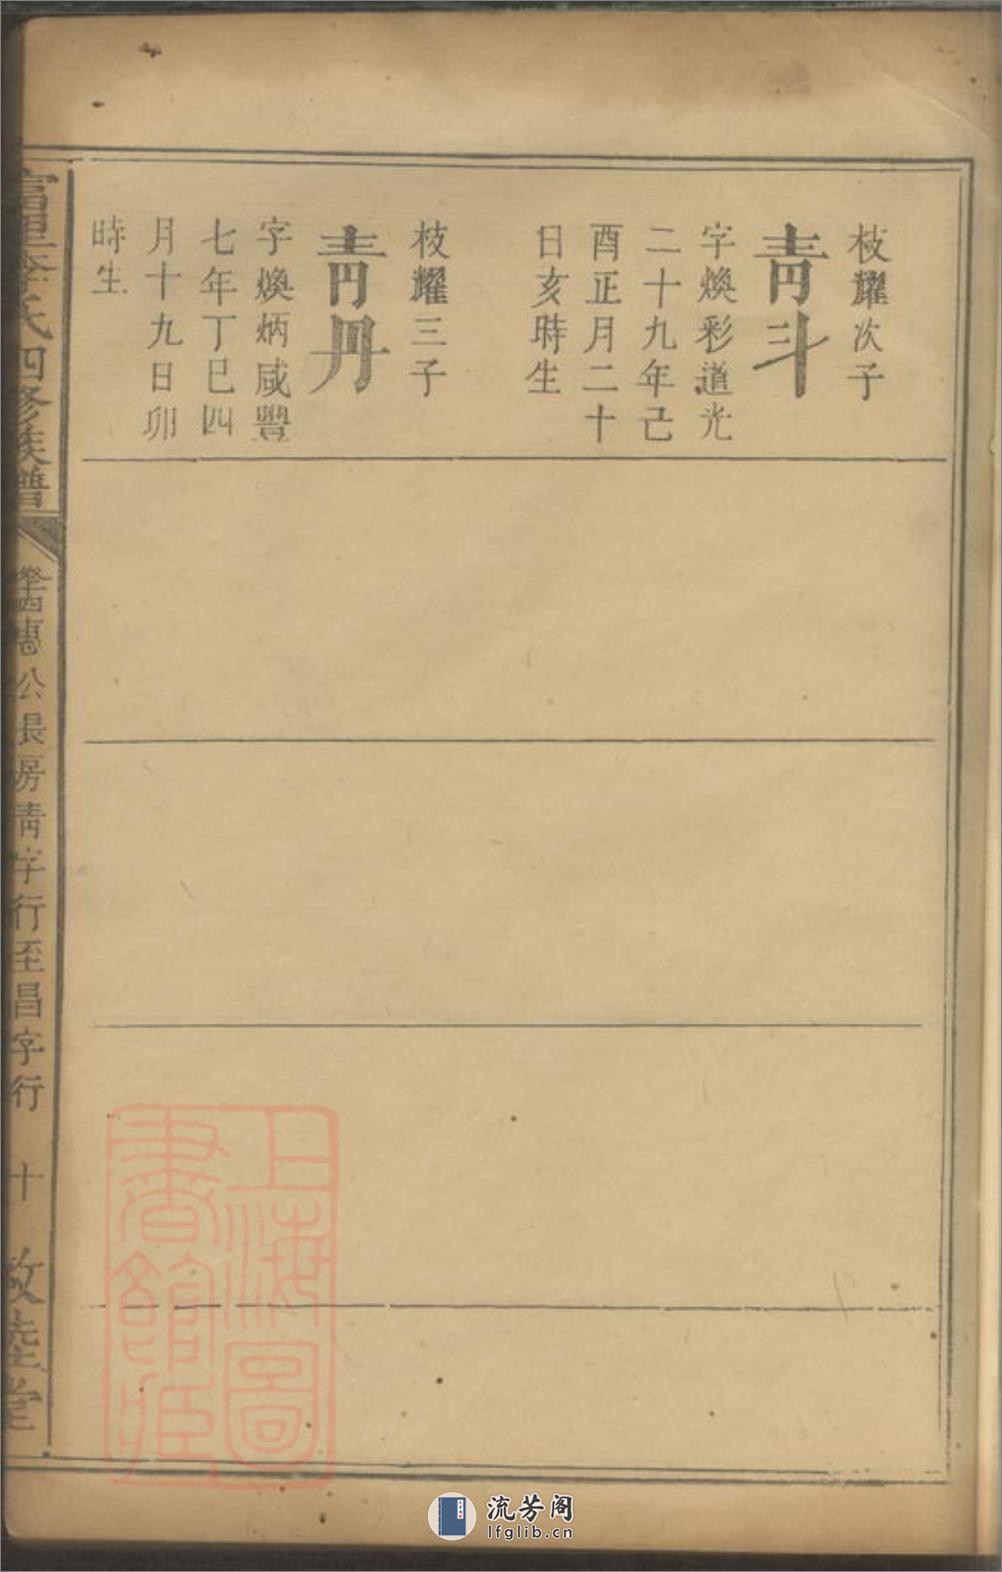 枝耀次子
青斗
字煥彩道光
二十九年己
酉正月二十
日亥時生
枝耀三子
青丹
字煥炳咸豐
七年丁巳四
月十九日卯
時生
富里李氏四修族譜
卷四惠公長房青字行至昌字行
十
敦睦堂
上海圖書館藏
流芳阁
lfglib.cn